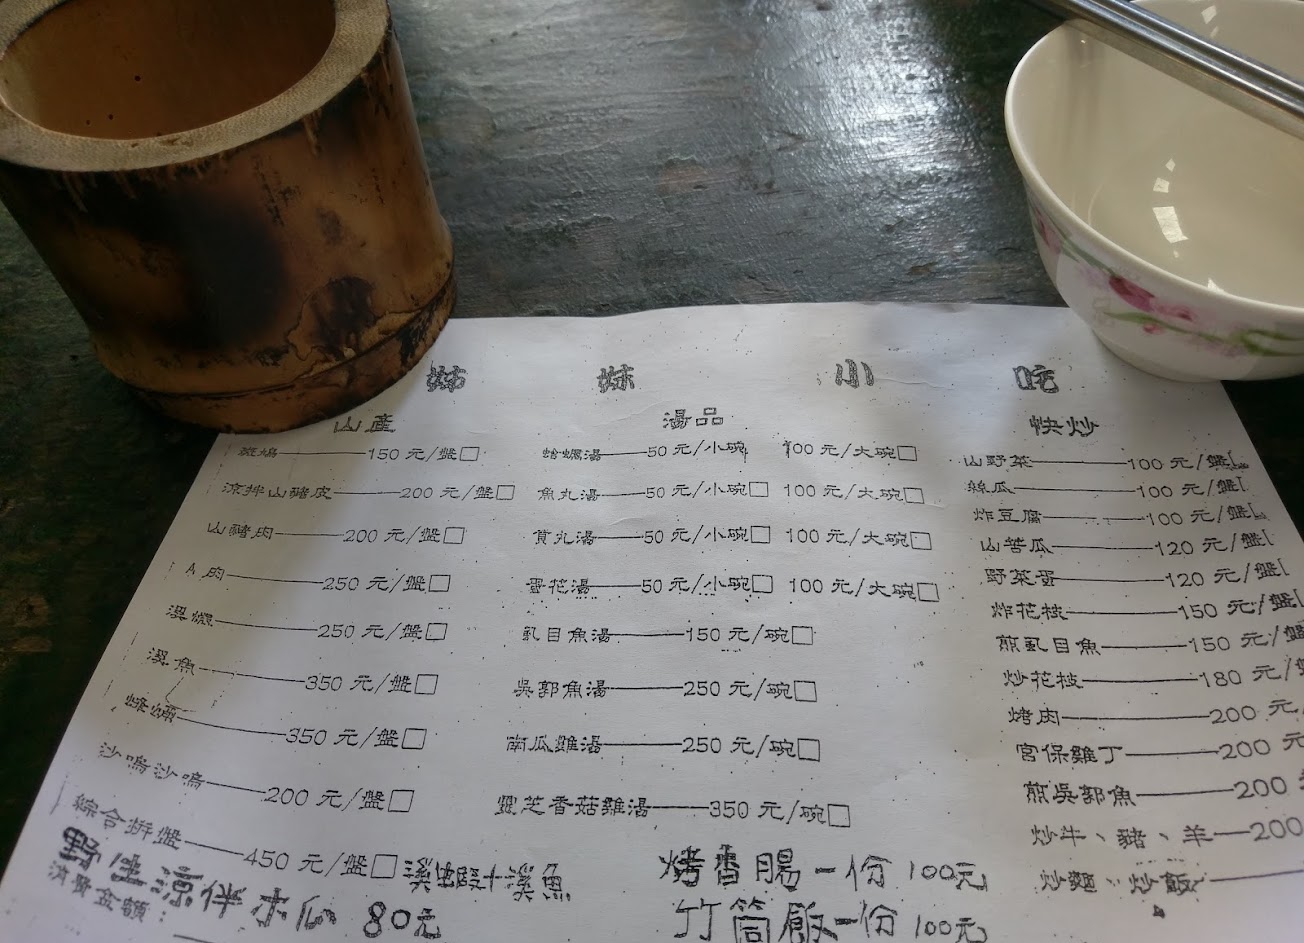 姊妹小吃
山產
斑鳩 150 元/盤□
涼拌山豬皮 200 元/盤□
山豬肉 200 元/盤□
A肉 250 元/盤□
溪蝦 250 元/盤□
溪魚 350 元/盤□
350 元/盤□
沙嗚沙嗚 200 元/盤□
綜合拼盤 450 元/盤□ 溪蝦+溪魚
野生涼伴木瓜 80元
消費金額：
湯品
蛤蠣湯 50 元/小碗 100 元/大碗□
魚丸湯 50 元/小碗□ 100 元/大碗□
貢丸湯 50 元/小碗□ 100 元/大碗□
蛋花湯 50 元/小碗□ 100 元/大碗□
虱目魚湯 150 元/碗□
吳郭魚湯 250 元/碗□
南瓜雞湯 250 元/碗□
靈芝香菇雞湯 350 元/碗□
烤香腸一份 100元
竹筒飯一份 100元
快炒
山野菜 100 元/盤
絲瓜 100 元/盤
炸豆腐 100 元/盤
山苦瓜 120 元/盤
野菜蛋 120 元/盤
炸花枝 150 元/盤
煎虱目魚 150 元/盤
炒花枝 180 元/盤
烤肉 200 元
宮保雞丁 200 元
煎吳郭魚 200
炒牛、豬、羊 200
炒麵、炒飯